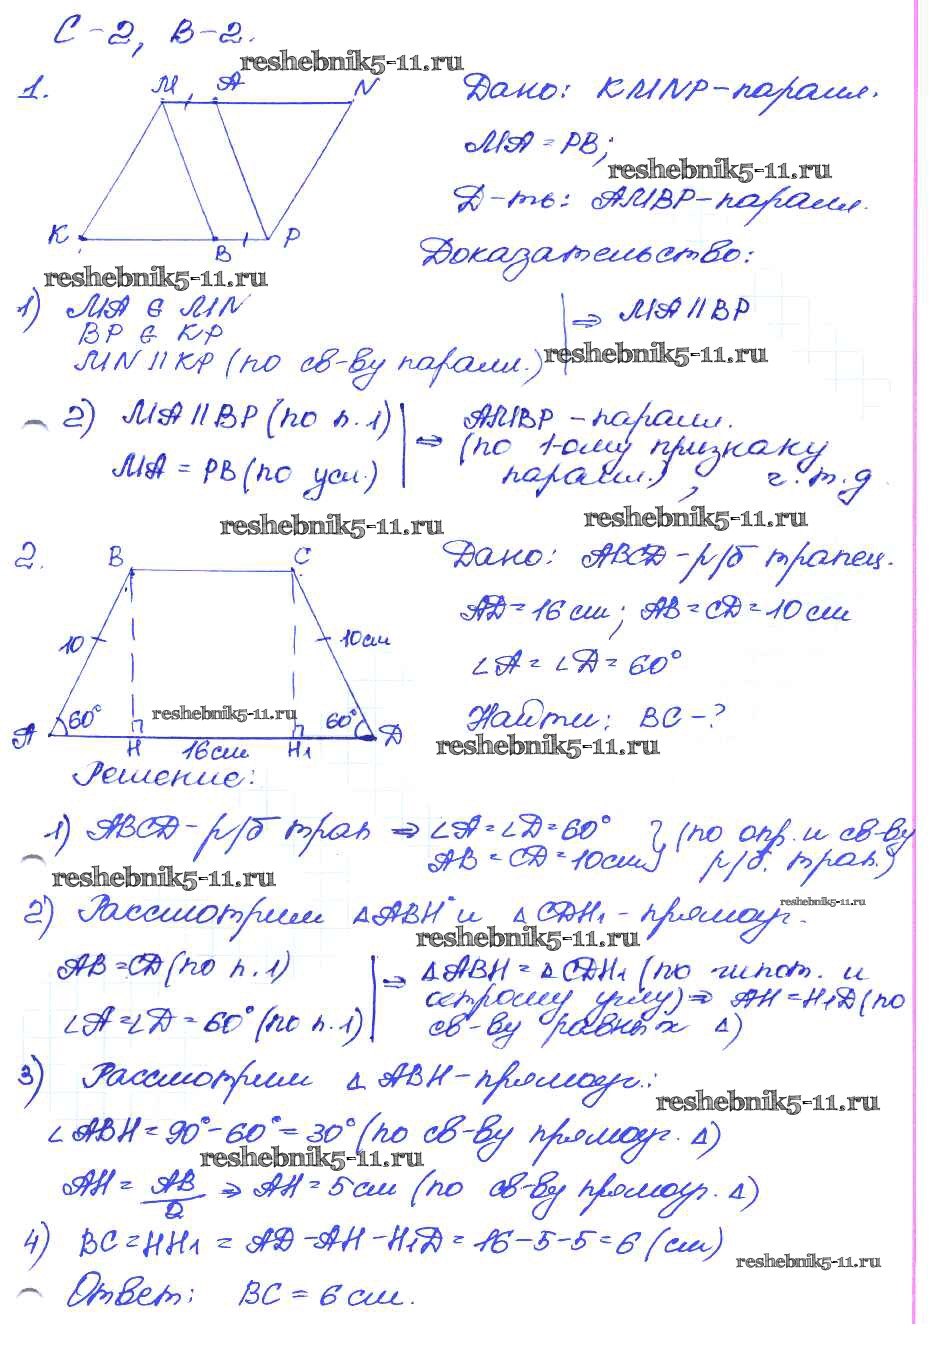 С-2, В-2.
reshebnik5-11.ru
1.
M A N
K B P
Дано: KMNP-паралл.
MA = PB;
reshebnik5-11.ru
Д-ть: AMBP-паралл.
Доказательство:
reshebnik5-11.ru
1) MA ∈ MN
BP ∈ KP
MN || KP (по св-ву паралл.)
⇒ MA || BP
reshebnik5-11.ru
2) MA || BP (по п.1)
MA = PB (по усл.)
⇒ AMBP - паралл.
(по 1-ому признаку
паралл.), ч.т.д.
reshebnik5-11.ru
reshebnik5-11.ru
2.
B C
10 10см
A 60° 60° D
H 16см H1
reshebnik5-11.ru
Дано: ABCD-р/б трапец.
AD=16см; AB=CD=10см
∠A = ∠D = 60°
Найти: BC-?
reshebnik5-11.ru
Решение:
1) ABCD-р/б трап ⇒ ∠A=∠D=60° } (по опр. и св-ву
AB=CD=10см } р/б. трап.)
reshebnik5-11.ru
reshebnik5-11.ru
2) Рассмотрим ΔABH и ΔCDH1 - прямоуг.
reshebnik5-11.ru
AB=CD (по п.1)
∠A=∠D=60° (по п.1)
⇒ ΔABH=ΔCDH1 (по гипот. и
острому углу) ⇒ AH=H1D (по
св-ву равных Δ)
3) Рассмотрим ΔABH-прямоуг.:
reshebnik5-11.ru
∠ABH=90°-60°=30° (по св-ву прямоуг. Δ)
reshebnik5-11.ru
AH = AB/2 ⇒ AH=5см (по св-ву прямоуг. Δ)
4) BC=HH1 = AD-AH-H1D=16-5-5=6 (см)
reshebnik5-11.ru
Ответ: BC=6см.